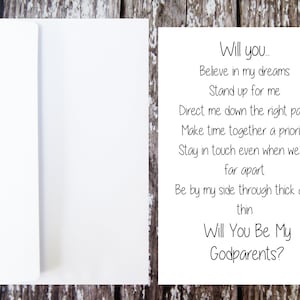 Will you..
Believe in my dreams
Stand up for me
Direct me down the right
Make time together a
Stay in touch even when
far apart
Be by my side through thick
thin
Will You Be My
Godparents?